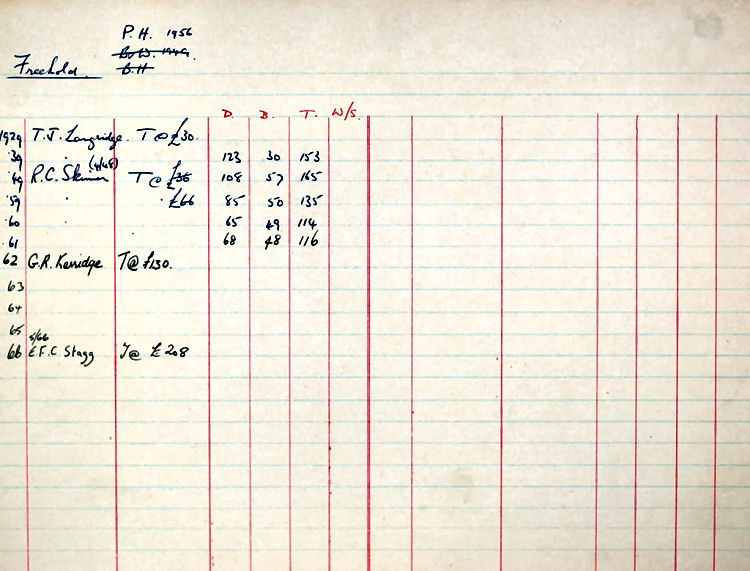 P.H. 1956
B.W. 1949.
Freehold.
B.H
D. B. T. W/S.
1929 T.J. Langridge. T @ £30.
'39 " 123 30 153
(4/48)
'49 R.C. Skinner T @ £36 108 57 165
'59 " " £66 85 50 135
'60 " 65 49 114
'61 " 68 48 116
62 G.R. Kerridge T@ £130.
63
64
65
5/66
66 E.F.C. Stagg T@ £208